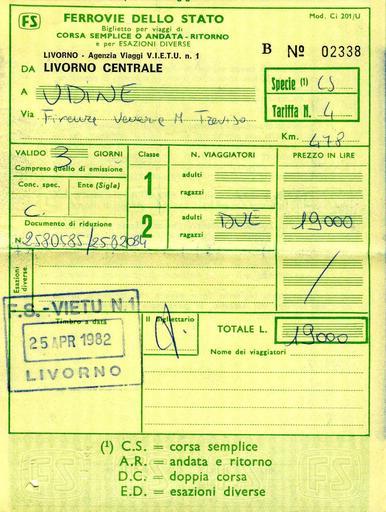 FS FERROVIE DELLO STATO Mod. Ci 201/U
Biglietto per viaggi di
CORSA SEMPLICE O ANDATA-RITORNO
e per ESAZIONI DIVERSE
LIVORNO - Agenzia Viaggi V.I.E.T.U. n. 1
B Nº 02338
DA LIVORNO CENTRALE
Specie (1) CS
A UDINE
Tariffa N. 4
Via Firenze Venezia M Treviso
Km. 478
VALIDO 3 GIORNI Classe N. VIAGGIATORI PREZZO IN LIRE
Compreso quello di emissione
Conc. spec. Ente (Sigla) 1 adulti
ragazzi
C.
Documento di riduzione 2 adulti DUE 19000
N. 2580585/2582084 ragazzi
Esazioni diverse
F.S.-VIETU N.1
Timbro a data Il Bigliettario TOTALE L. 19000
25 APR 1982
Nome dei viaggiatori
LIVORNO
(1) C.S. = corsa semplice
A.R. = andata e ritorno
D.C. = doppia corsa
E.D. = esazioni diverse
FS FS